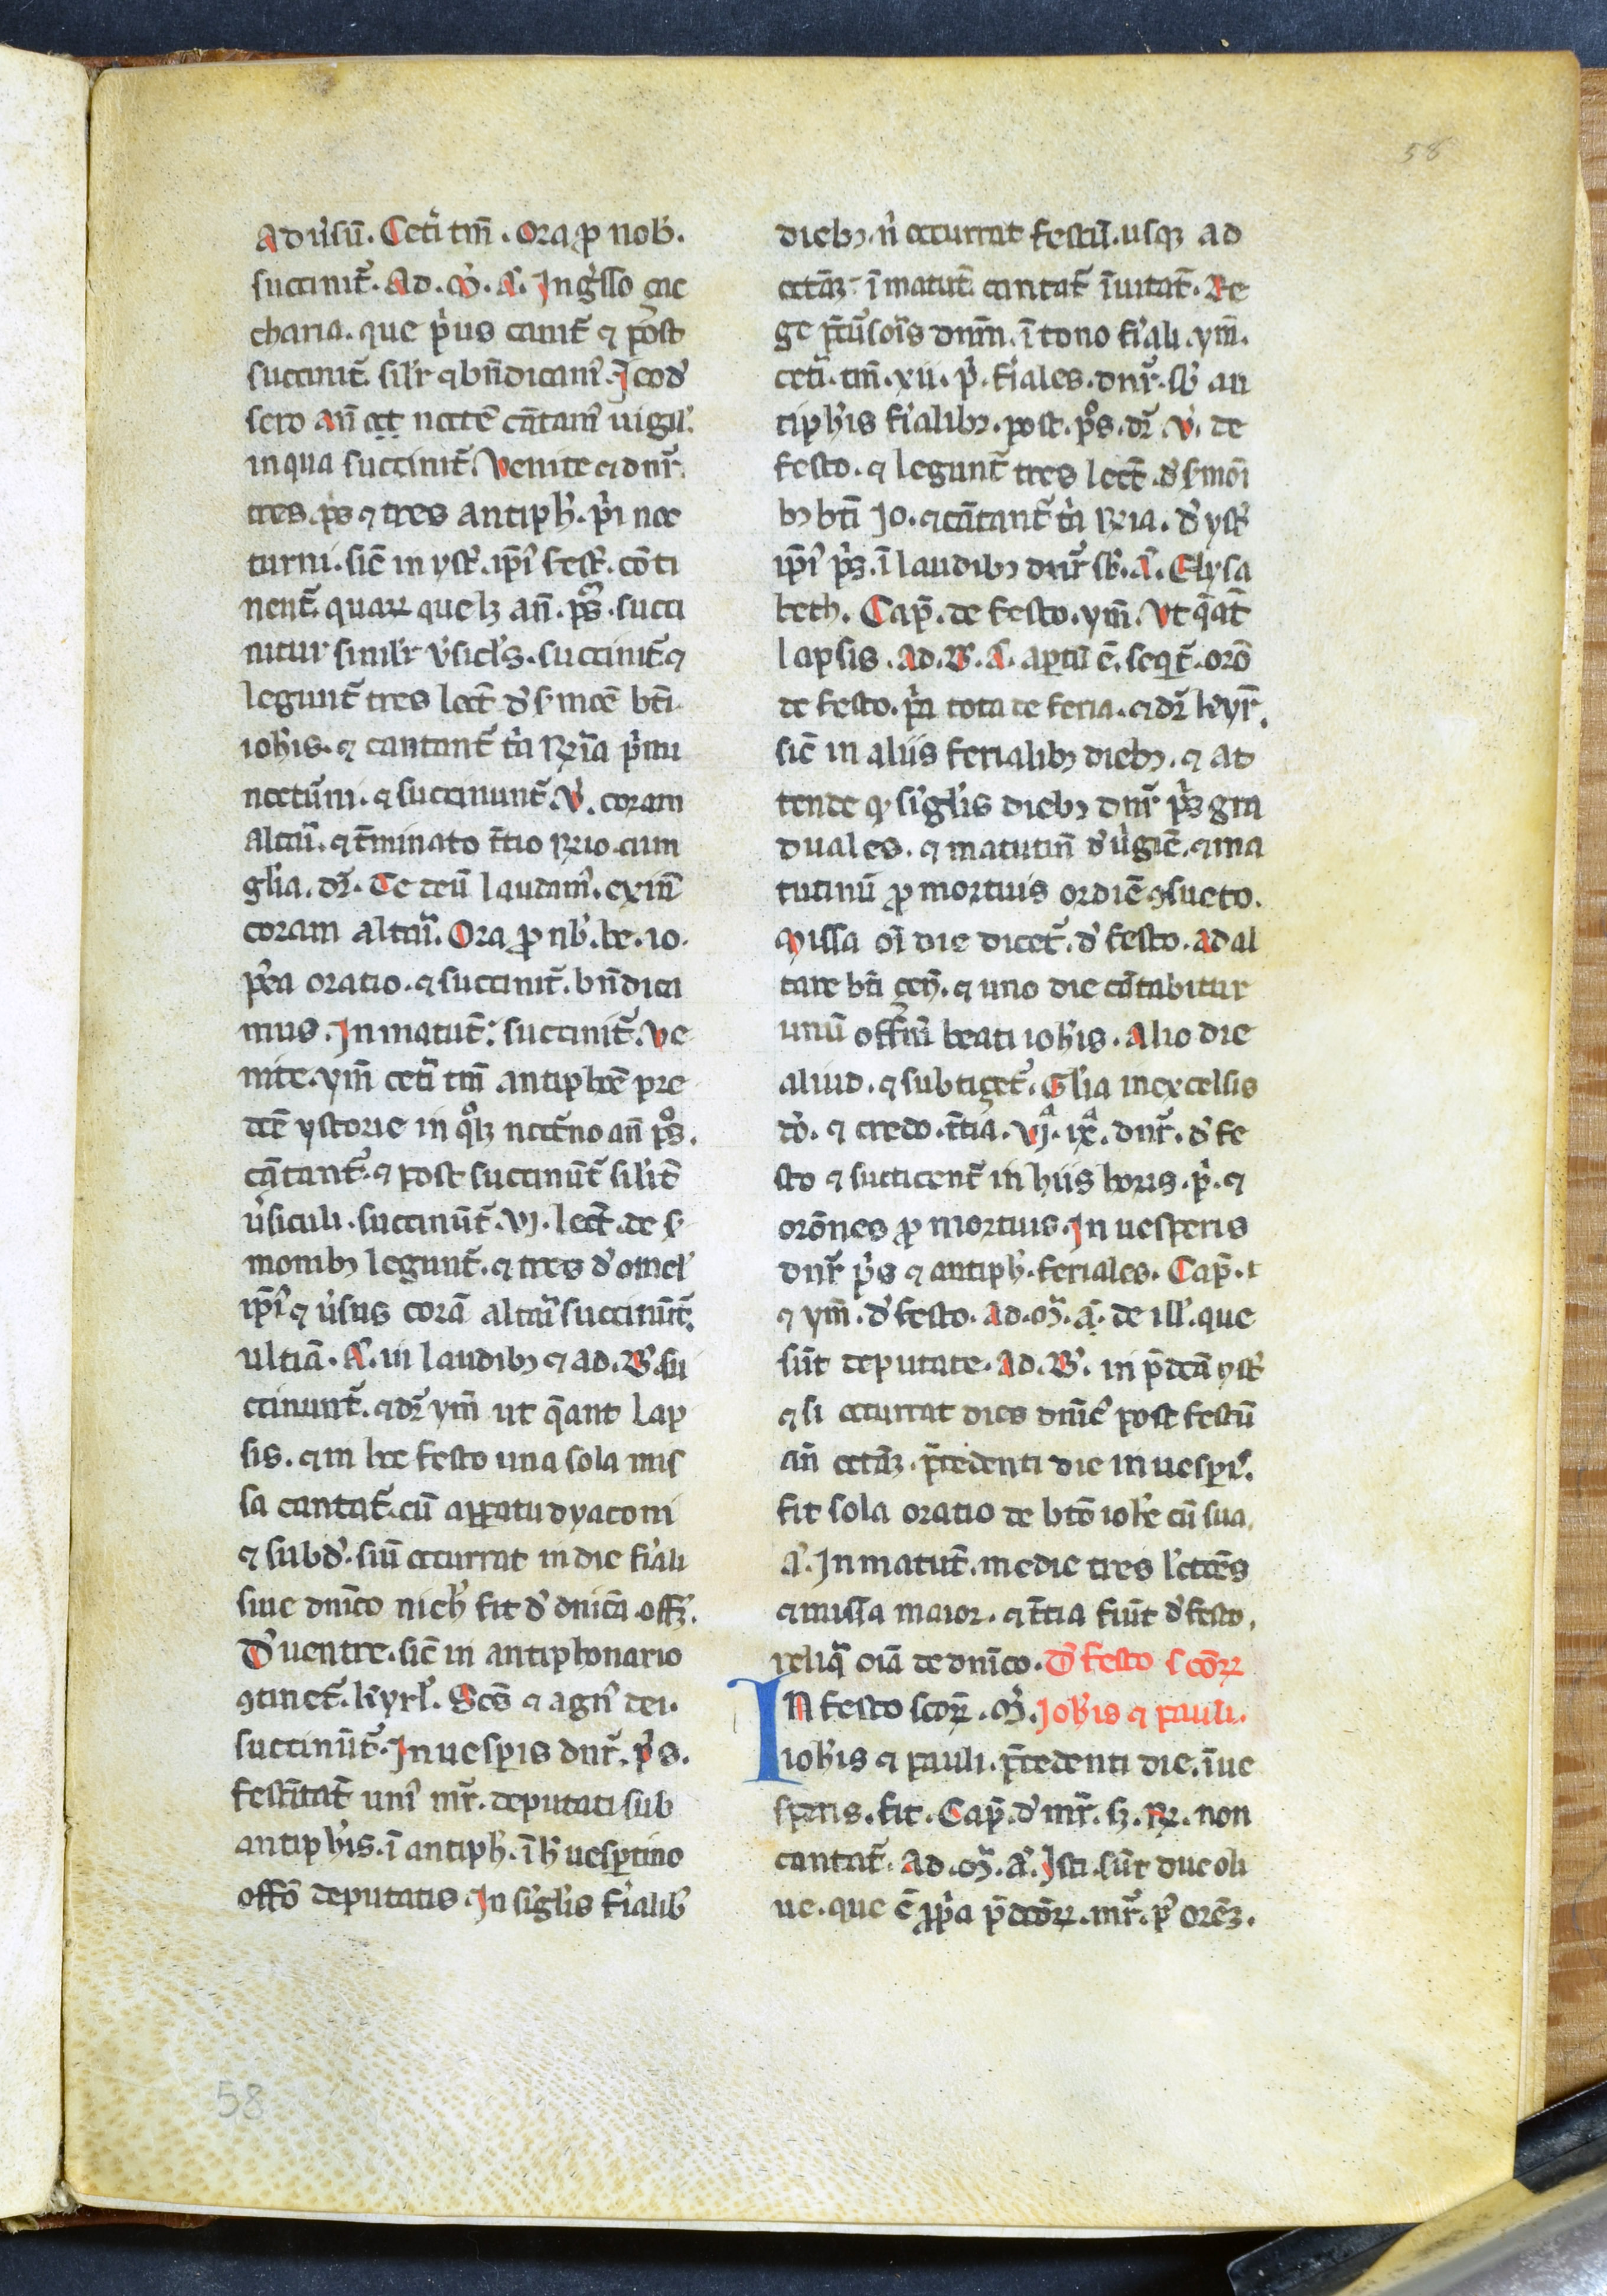 58
Ad ũsū. Cetĩ tm̄. Ora ꝓ nob̾.
succinit᷑. Ad. M̾. A᷑. Ingͥsso çac
charia. que pͥus canit᷑ ⁊ post
succinit᷑. silr̾ ⁊ bn̄dicamꝰ. J eod̾
sero an̄ noctē cātamꝰ uigil̾.
in qua succinit᷑. Venite ⁊ dnr᷑.
tres. ps̾ ⁊ tres antiph̾. pͥ noc
turni. sic̄ in yst̾. ip̄iꝰ fest̾. cōti
nent᷑. quaꝝ quelꝫ an̄. ps̾. succi
nitur simılr̾ ṽsicl̾s. succinit᷑ ⁊
legunt᷑ tres lect̄. d̾ s̾mōē bt̄i
ioh̾is. ⁊ cantant᷑ tͥa ꝶia pͥmi
noctūni. ⁊ succinunt᷑. V̾. coram
altaͥ. ⁊ t̄minato t̄tio ꝶio cum
gl̾ia. dr᷑. Te deū laudamꝰ. exin̄
coram altaͥ. Ora ꝓ nb̾. be. io.
p̾ea oratio. ⁊ succinit᷑. bn̄dica
mus. In matut̄. succinit᷑. Ve
nite. ym̄ cetͥ tm̄ antiphōē pre
dc̄e ystorie in qͦlꝫ noct̾no an̄ ps̾.
cātant᷑. ⁊ post succinūt᷑ silit̾
ũsiculi. succinūt᷑. VJ. lect̄. de s̾
monibꝫ legunt᷑. ⁊ tres d̾ omel̾
ip̄iꝰ ⁊ ũsus corā altaͥ succinūt᷑.
ultīā. A᷑. in laudibꝫ ⁊ ad. B̾. su
ccinunt᷑. ⁊ dr᷑ ym̄ ut qͥant lap
sis. ⁊ in hoc festo una sola mis
sa cantat᷑. cū apꝑatu dyaconi
⁊ subd̾. siū occurrat in die fͥali
siue dn̄ico nich̾ fit d̾ dn̄ica. off̾.
D̾ uentre. sic̄ in antiphonario
ꝯtinet᷑. kyrl̾. Sc̄s ⁊ agnꝰ dei.
succinūt᷑. In uesꝑis dnr᷑. ps̾.
festītat᷑ uniꝰ mr̄. deputati sub
antiph̾is. ī antiph̾. ī h̾ uesꝑtino
offō deputatis. In sigl̾is fͥalib̾
dieb̾. n̾ occurrat festū. usqꝫ ad
octāꝫ. ī matut̄. cantat᷑ īuitat᷑. Re
ge p̄cūsoris dnm̄. ī tono fͥali. ym̄.
cetͥ. tm̄. xii. pͥ. fͥales. dnr᷑. sb̾ an
tiph̾is fͥalibꝫ. post. ps̾. dr᷑. V̾. de
festo. ⁊ legunt᷑ tres lect̄. d̾ s̾moı̄
bꝫ bt̄i Jo. ⁊ cātant᷑ tͥa ꝶia. d̾ yst̾
ip̄iꝰ ps̾. ī laudibꝫ dnr᷑ sb̾. A᷑. Elysa
beth. Cap̄. de festo. ym̄. Vt qͥāt᷑
lapsis. Ad. B̾. A᷑. aꝑtū ē. seqt̾. orō
de festo. pͥa tota de feria. ⁊ dr᷑ kyr̄.
sic̄ in aliis ferialibꝫ diebꝫ. ⁊ at
tende qꝫ sigl̾is diebꝫ dnr᷑ ps̾ gra
duales. ⁊ matutin̄ d̾ ũgiē. ⁊ ma
tutinū ꝓ mortuis ordiē ꝯsueto.
Missa oı̄ die dicet᷑. d̾ festo. Ad al
tare bt̄i çen̾. ⁊ uno die cātabitur
unū offm̄ beati ioh̾is. Alio die
aliud. ⁊ subticet᷑. Gl̾ia in excelsis
dō. ⁊ credo. t̄tia. VJᵃ. ixᵃ. dnr᷑. d̾ fe
sto ⁊ succicent᷑ in hiis horis. p̾. ⁊
orōnes ꝓ mortuis. In uesperis
dnr᷑ ps̾ ⁊ antiph̾. feriales. Cap̄. t
⁊ ym̄. d̾ festo. Ad. M̾. a᷑. de ill̾. que
sūt deputate. Ad. B̾. in p̄dcā yst̾
⁊ si occurrat dies dn̄ic̾ post festū
an̄ octāꝫ. p̄cedenti die in uesper̾.
fit sola oratio de bt̄o ioh̾e cū sua.
a᷑. In matut̄. medie tres lc̄cōes
⁊ missa maior. ⁊ t̄tia fiūt d̾ festo.
reliqͣ oīa de dn̄ico. D̾ festo scōꝝ
IN festo scoꝝ. M̾. Joh̾is ⁊ pauli.
ioh̾is ⁊ pauli. p̄cedenti die. ī ue
speris. fit. Cap̄. d̾ mr̄. sꝫ. ꝶ. non
cantat᷑. Ad. M̾. A᷑. Isti sūt due oli
ue. que ē ꝓpͥa p̄dcōꝝ. mr̄. p̾ orēꝫ.
58